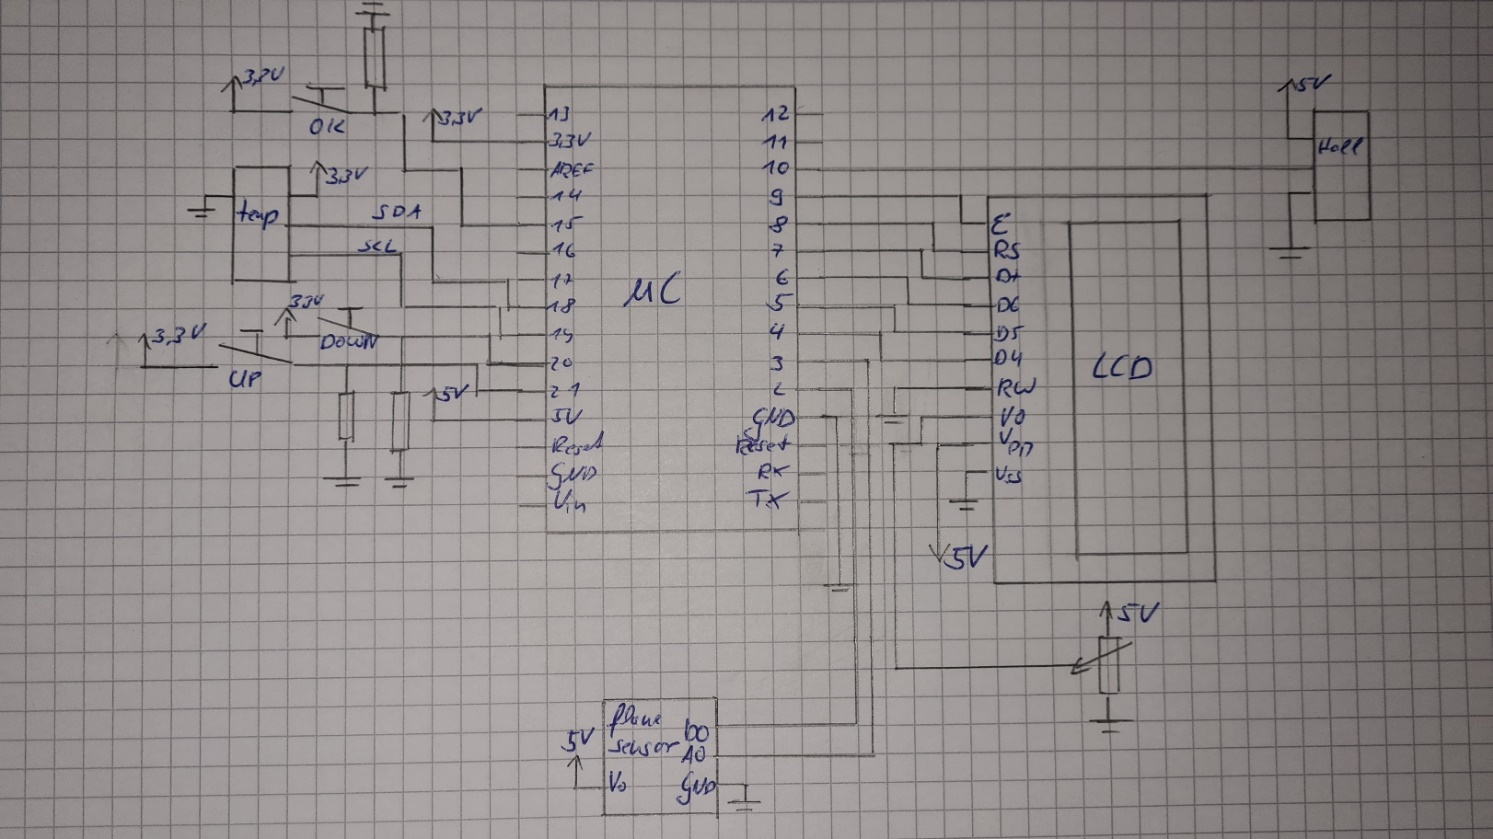 3,3V
OK
3.3V
temp
3.3V
SDA
SCL
3.3V
DOWN
3,3V
UP
5V
13
3.3V
AREF
14
15
16
17
18
19
20
21
5V
Reset
GND
Vin
µC
12
11
10
9
8
7
6
5
4
3
2
GND
Reset
RX
TX
E
RS
D7
D6
D5
D4
RW
V0
VDD
VSS
LCD
5V
Hall
5V
5V
5V
flame
sensor
DO
A0
V0
GND